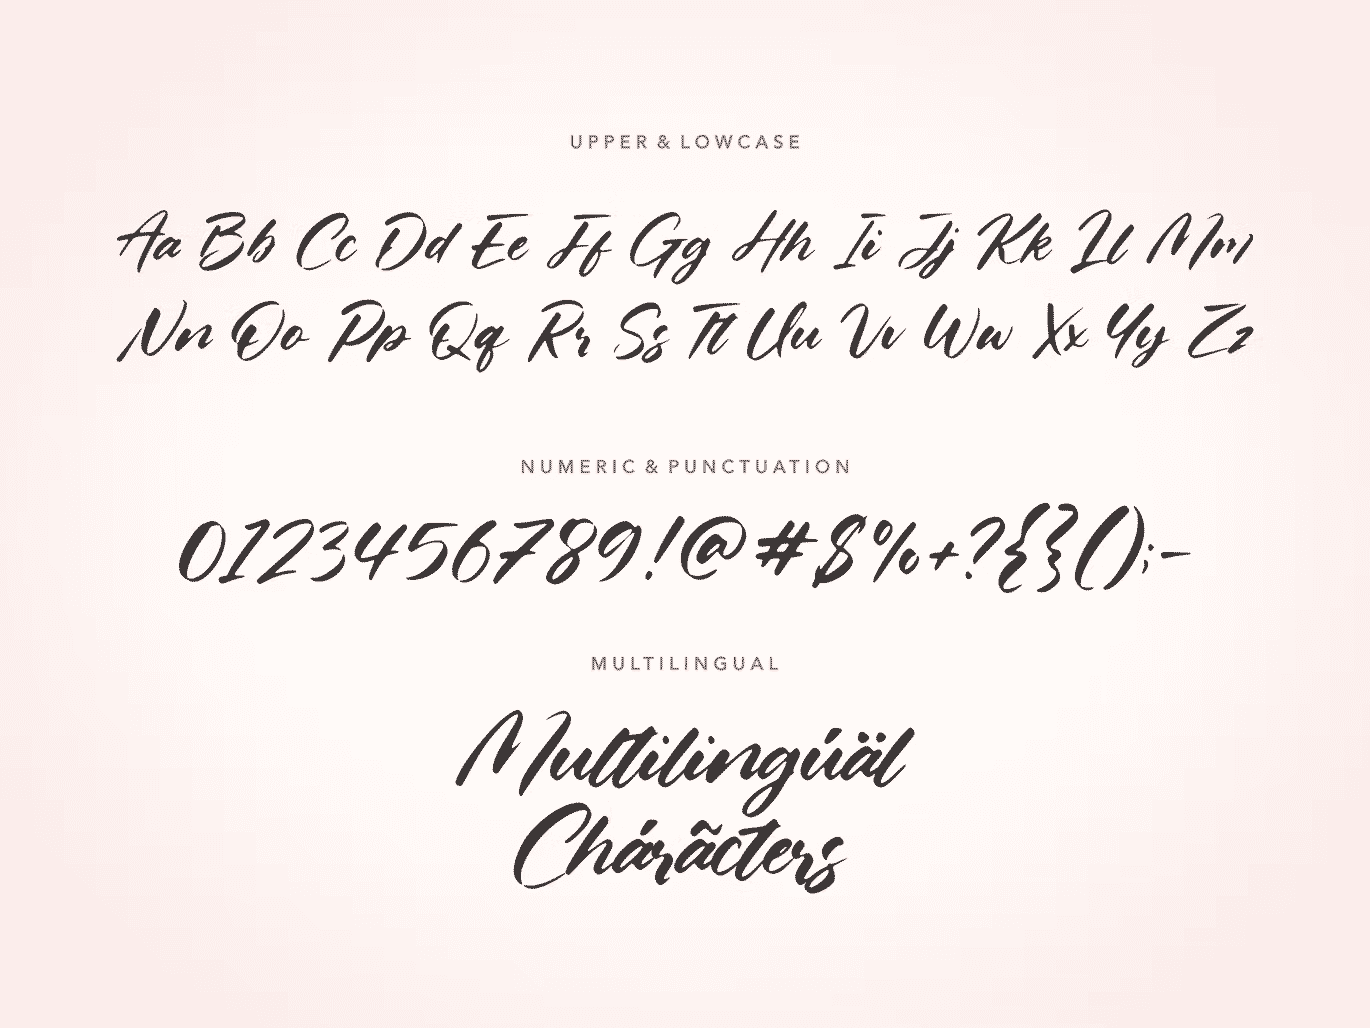 UPPER & LOWCASE
Aa Bb Cc Dd Ee Ff Gg Hh Ii Jj Kk Ll Mm
Nn Oo Pp Qq Rr Ss Tt Uu Vv Ww Xx Yy Zz
NUMERIC & PUNCTUATION
0123456789!@#$%+?{}();-
MULTILINGUAL
Multilingúäl
Chárãcters